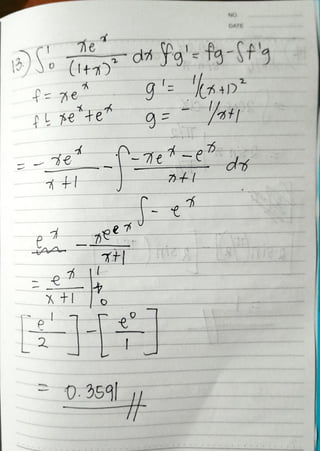 NO
DATE
13) ∫₀¹ xeˣ / (1+x)² dx ∫fg' = fg - ∫f'g
f = xeˣ g' = 1/(x+1)²
f' = xeˣ + eˣ g = - 1/x+1
= - xeˣ / x+1 - ∫ -xeˣ - eˣ / x+1 dx
∫ - eˣ
eˣ - xeˣ / x+1
= eˣ / x+1 |₀¹
[e¹ / 2] - [e⁰ / 1]
= 0.3591 //